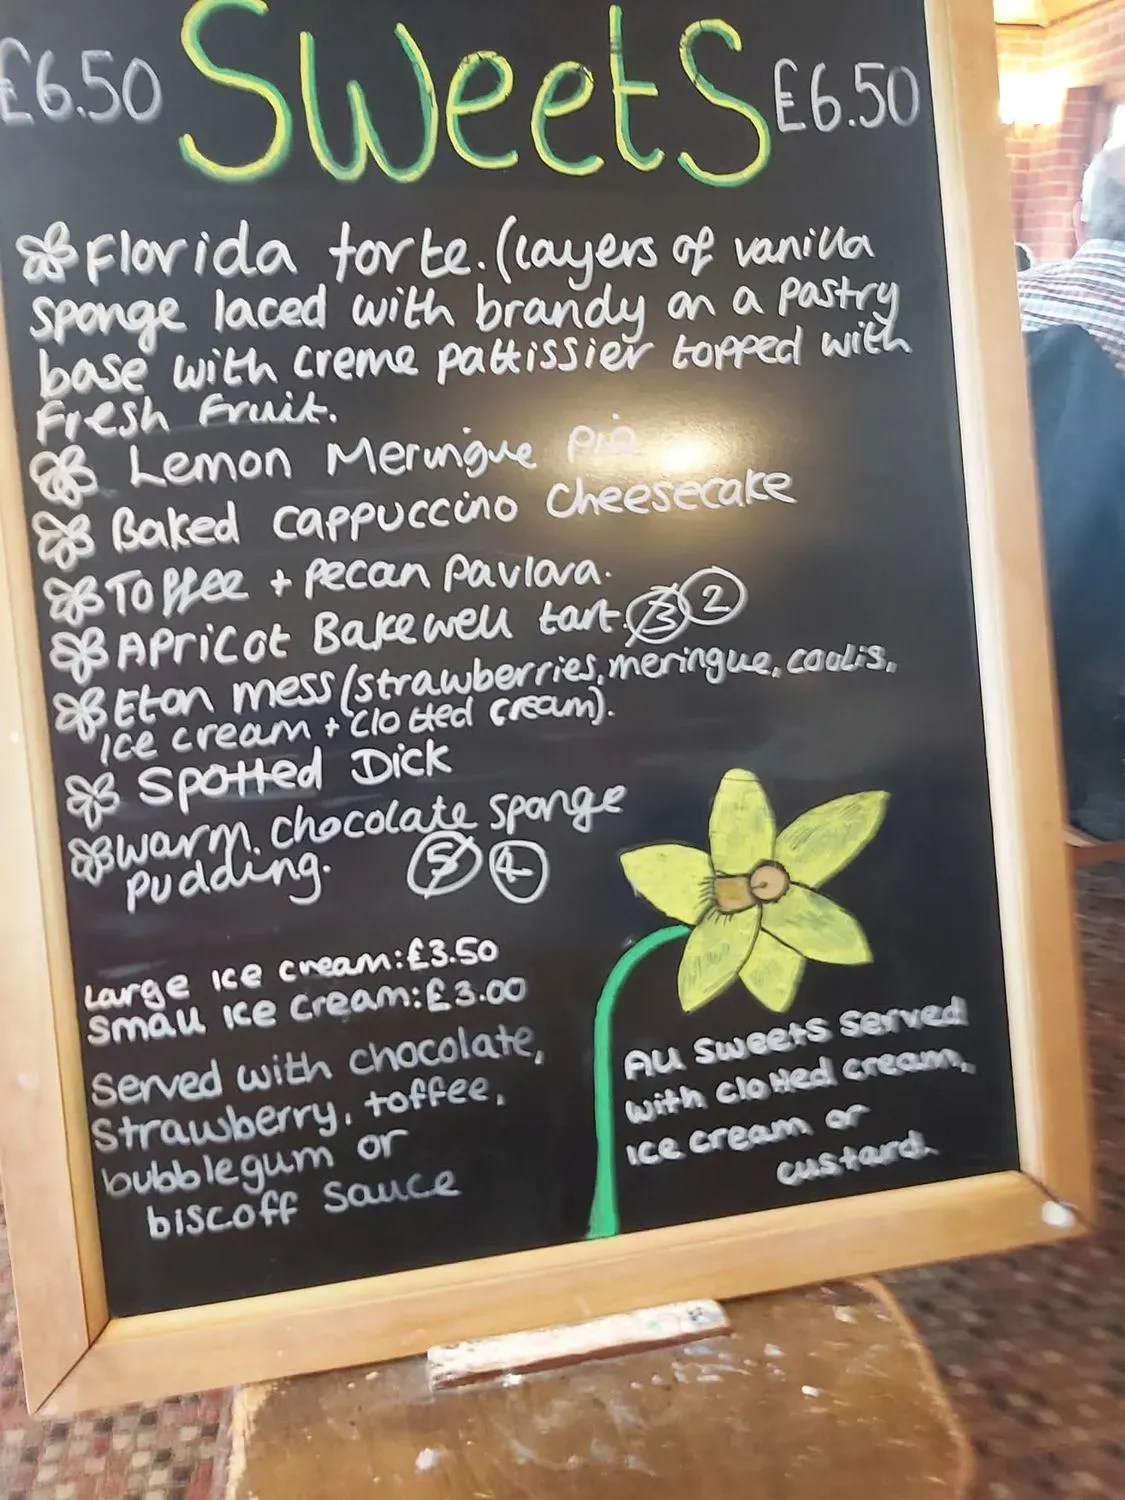 £6.50 Sweets £6.50
Florida torte. (layers of vanilla
sponge laced with brandy on a pastry
base with creme pattissier topped with
fresh fruit.
Lemon Meringue Pie
Baked cappuccino cheesecake
Toffee + pecan pavlova.
Apricot Bakewell tart. 3 2
Eton mess (strawberries, meringue, coulis,
ice cream + clotted cream).
Spotted Dick
warm chocolate sponge
pudding. 5 4
Large ice cream: £3.50
Small ice cream: £3.00
Served with chocolate,
strawberry, toffee,
bubblegum or
biscoff sauce
All sweets served
with clotted cream,
ice cream or
custard.